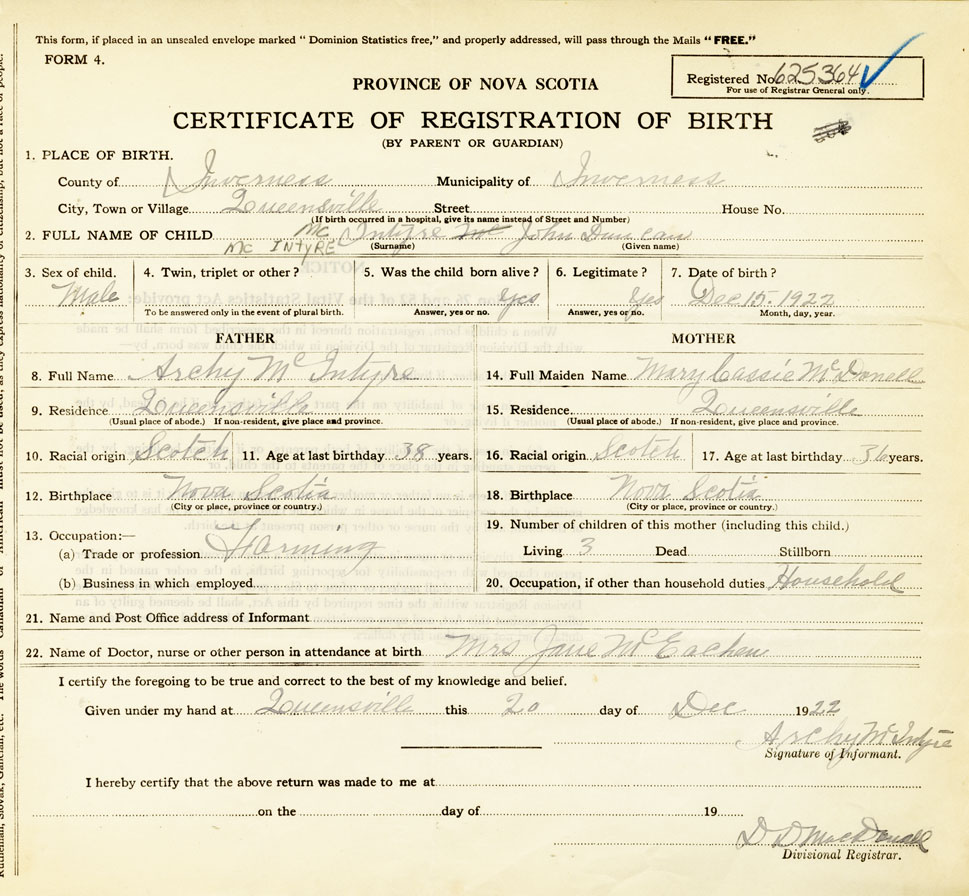 This form, if placed in an unsealed envelope marked "Dominion Statistics free," and properly addressed, will pass through the Mails "FREE."
FORM 4.
Registered No. 625364
For use of Registrar General only.
PROVINCE OF NOVA SCOTIA
CERTIFICATE OF REGISTRATION OF BIRTH
(BY PARENT OR GUARDIAN)
1. PLACE OF BIRTH.
County of Inverness Municipality of Inverness
City, Town or Village Queensville Street House No.
(If birth occurred in a hospital, give its name instead of Street and Number)
2. FULL NAME OF CHILD Mc Intyre Mc John Duncan
Mc INTYRE (Surname) (Given name)
3. Sex of child. Male
4. Twin, triplet or other?
To be answered only in the event of plural birth.
5. Was the child born alive? Yes
Answer, yes or no.
6. Legitimate? Yes
Answer, yes or no.
7. Date of birth? Dec 15. 1922
Month, day, year.
FATHER
8. Full Name Archy McIntyre
9. Residence Queensville
(Usual place of abode.) If non-resident, give place and province.
10. Racial origin Scotch 11. Age at last birthday 38 years.
12. Birthplace Nova Scotia
(City or place, province or country.)
13. Occupation:—
(a) Trade or profession Farming
(b) Business in which employed
MOTHER
14. Full Maiden Name Mary Cassie McDonell
15. Residence. Queensville
(Usual place of abode.) If non-resident, give place and province.
16. Racial origin Scotch 17. Age at last birthday 36 years.
18. Birthplace Nova Scotia
(City or place, province or country.)
19. Number of children of this mother (including this child.)
Living 3 Dead Stillborn
20. Occupation, if other than household duties Household
21. Name and Post Office address of Informant
22. Name of Doctor, nurse or other person in attendance at birth Mrs Jane McEachen
I certify the foregoing to be true and correct to the best of my knowledge and belief.
Given under my hand at Queensville this 20 day of Dec 1922
Archy McIntyre
Signature of Informant.
I hereby certify that the above return was made to me at
on the day of 19
D D MacDonald
Divisional Registrar.